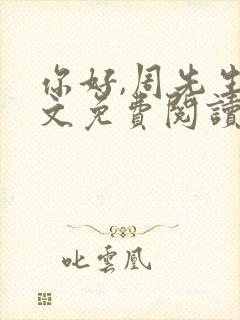 你好,周先生
文免费閱讀
叱雲凰